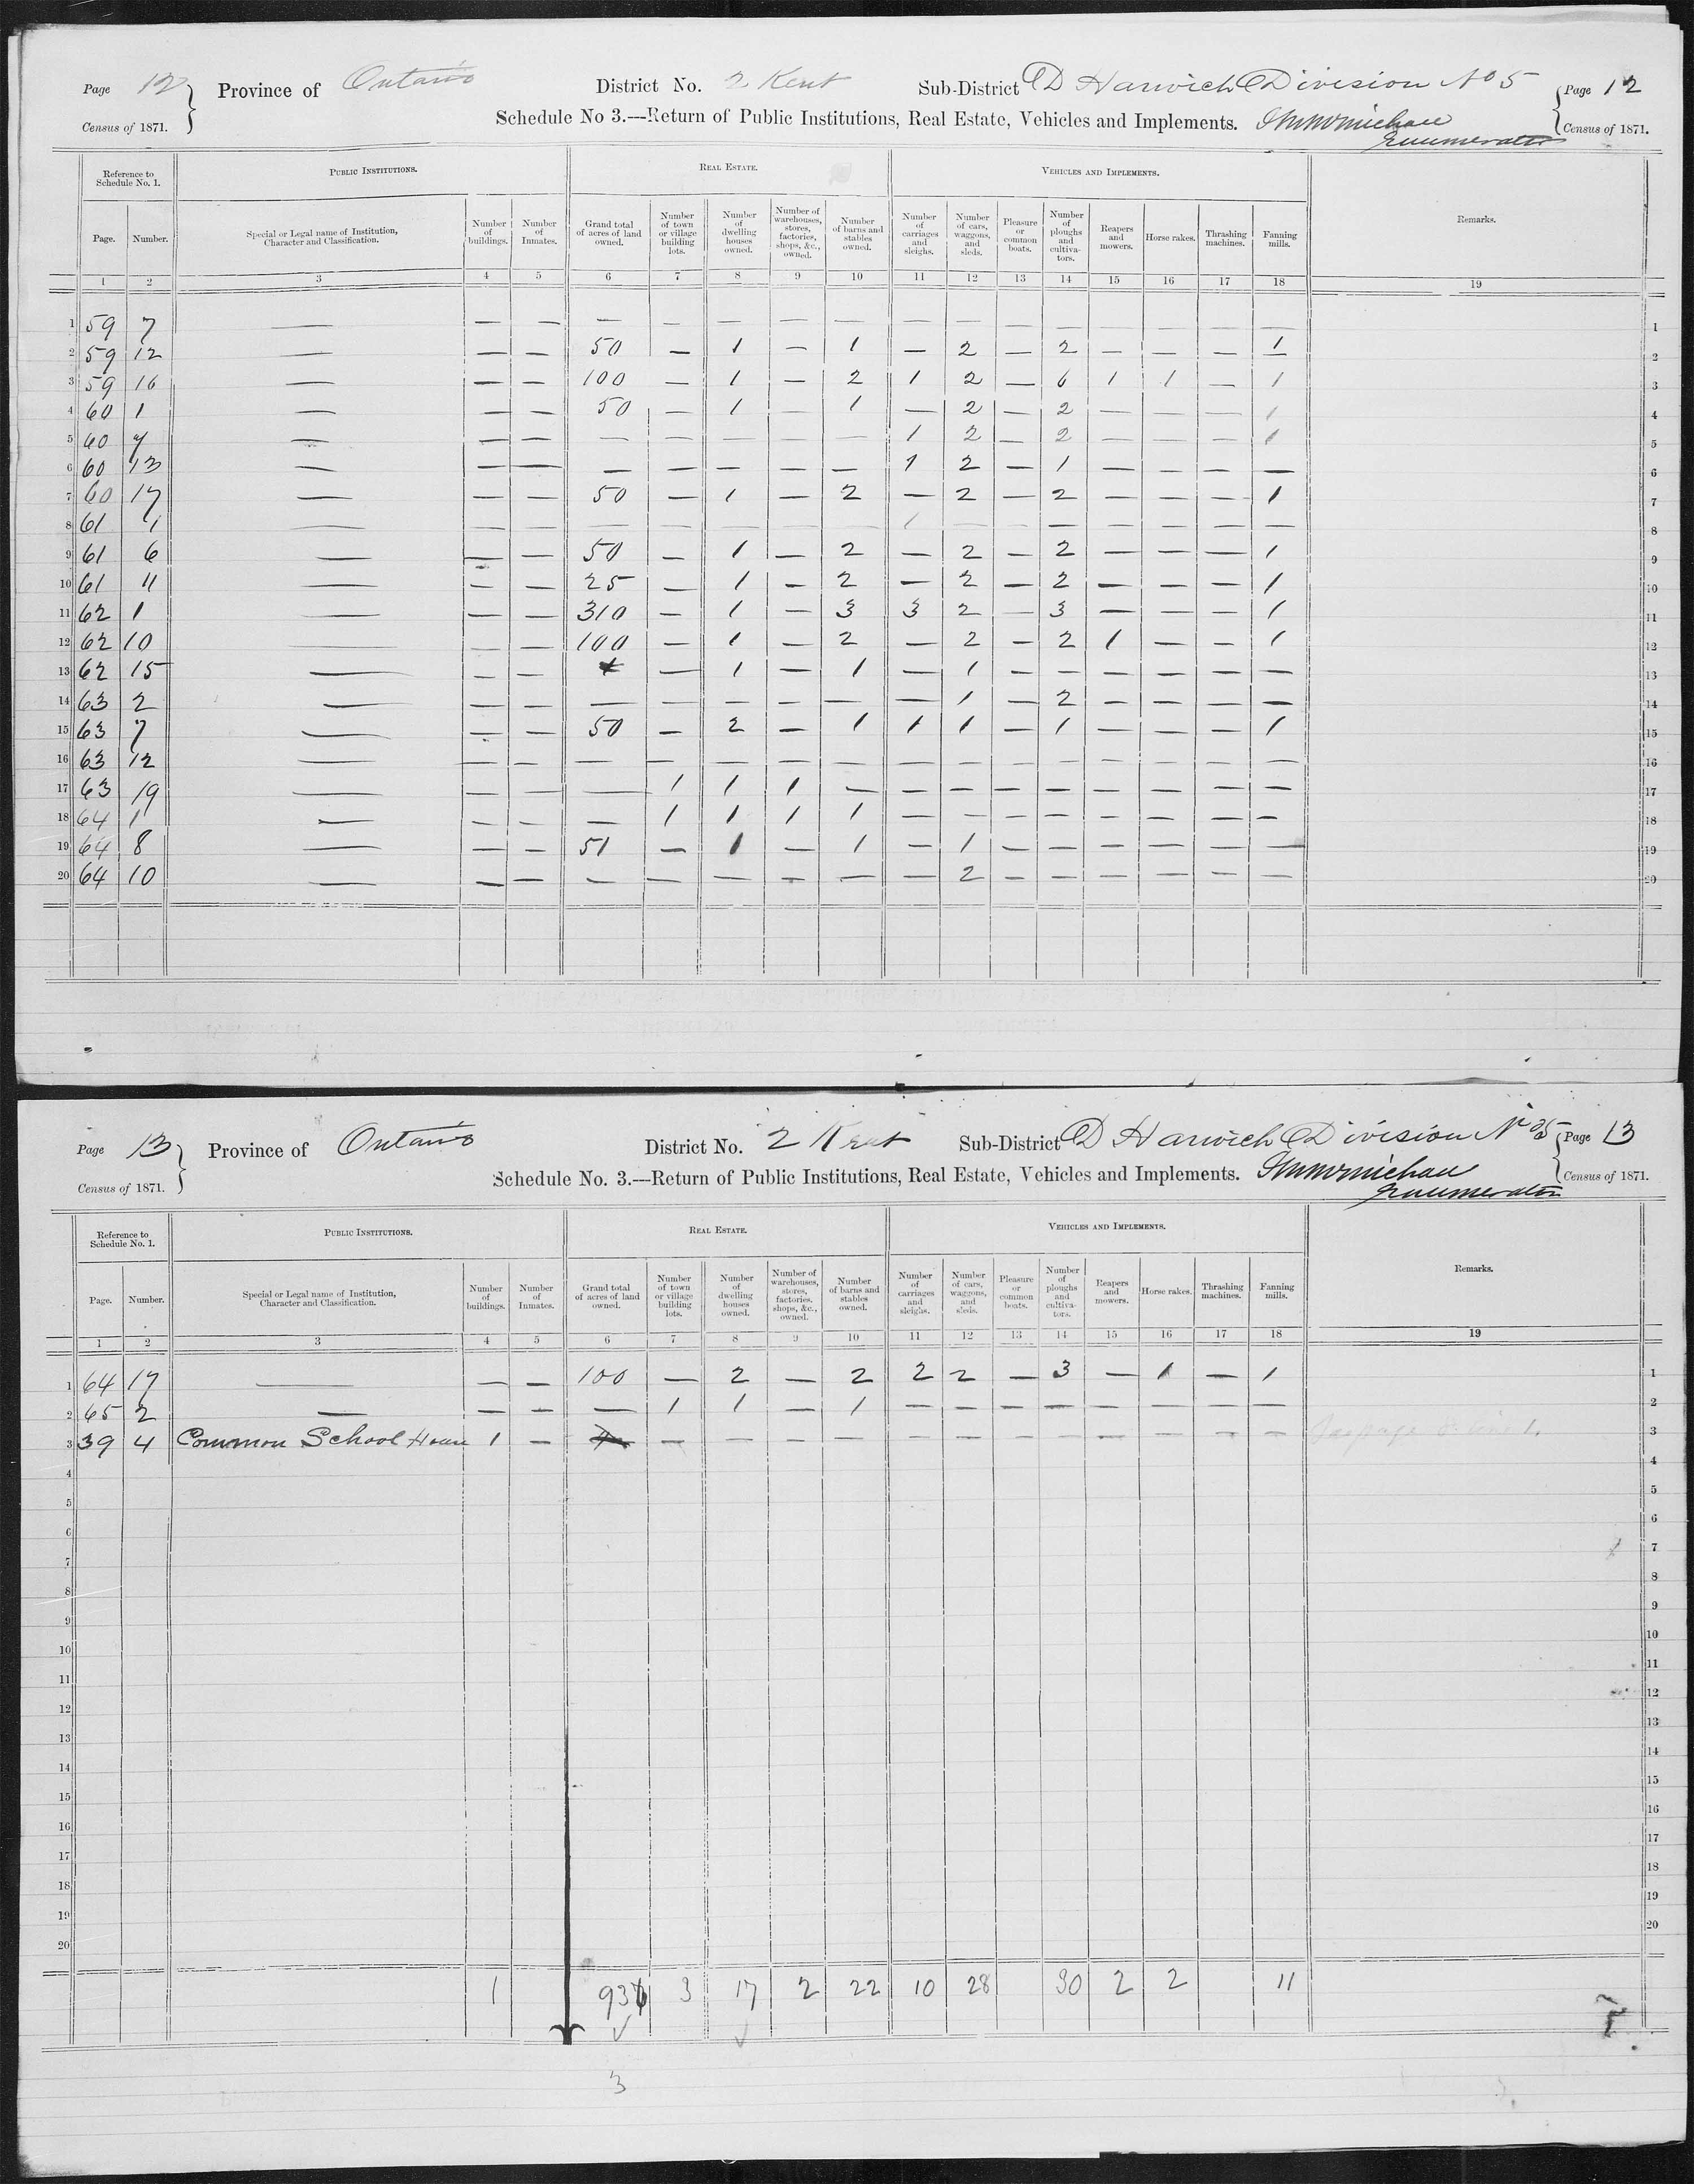 Page 12 } Province of Ontario District No. 2 Kent Sub-District D Harwich Division No 5 { Page 12
Census of 1871. Schedule No 3.—Return of Public Institutions, Real Estate, Vehicles and Implements. Census of 1871.
Enumerator
Reference to Schedule No. 1. PUBLIC INSTITUTIONS. REAL ESTATE. VEHICLES AND IMPLEMENTS. Remarks.
Page. Number. Special or Legal name of Institution, Character and Classification. Number of buildings. Number of Inmates. Grand total of acres of land owned. Number of town or village building lots. Number of dwelling houses owned. Number of warehouses, stores, factories, shops, &c., owned. Number of barns and stables owned. Number of carriages and sleighs. Number of cars, waggons, and sleds. Pleasure or common boats. Number of ploughs and cultivators. Reapers and mowers. Horse rakes. Thrashing machines. Fanning mills.
1 2 3 4 5 6 7 8 9 10 11 12 13 14 15 16 17 18 19
1 59 7 — — — — — — — — — — — — — — — — 1
2 59 12 — — — 50 — 1 — 1 — 2 — 2 — — — 1 2
3 59 16 — — — 100 — 1 — 2 1 2 — 6 1 1 — 1 3
4 60 1 — — — 50 — 1 — 1 — 2 — 2 — — — 1 4
5 60 7 — — — — — — — — 1 2 — 2 — — — 1 5
6 60 13 — — — — — — — — 1 2 — 1 — — — — 6
7 60 17 — — — 50 — 1 — 2 — 2 — 2 — — — 1 7
8 61 1 — — — — — — — — 1 — — — — — — — 8
9 61 6 — — — 50 — 1 — 2 — 2 — 2 — — — 1 9
10 61 11 — — — 25 — 1 — 2 — 2 — 2 — — — 1 10
11 62 1 — — — 310 — 1 — 3 3 2 — 3 — — — 1 11
12 62 10 — — — 100 — 1 — 2 — 2 — 2 1 — — 1 12
13 62 15 — — — — 1 — 1 — 1 — — — — — — 13
14 63 2 — — — — — — — — — 1 — 2 — — — — 14
15 63 7 — — — 50 — 2 — 1 1 1 — 1 — — — 1 15
16 63 12 — — — — — — — — — — — — — — — — 16
17 63 19 — — — — 1 1 1 — — — — — — — — — 17
18 64 1 — — — — 1 1 1 1 — — — — — — — — 18
19 64 8 — — — 51 — 1 — 1 — 1 — — — — — — 19
20 64 10 — — — — — — — — — 2 — — — — — — 20
Page 13 } Province of Ontario District No. 2 Kent Sub-District D Harwich Division No 5 { Page 13
Census of 1871. Schedule No. 3.—Return of Public Institutions, Real Estate, Vehicles and Implements. Census of 1871.
Enumerator
Reference to Schedule No. 1. PUBLIC INSTITUTIONS. REAL ESTATE. VEHICLES AND IMPLEMENTS. Remarks.
Page. Number. Special or Legal name of Institution, Character and Classification. Number of buildings. Number of Inmates. Grand total of acres of land owned. Number of town or village building lots. Number of dwelling houses owned. Number of warehouses, stores, factories, shops, &c., owned. Number of barns and stables owned. Number of carriages and sleighs. Number of cars, waggons, and sleds. Pleasure or common boats. Number of ploughs and cultivators. Reapers and mowers. Horse rakes. Thrashing machines. Fanning mills.
1 2 3 4 5 6 7 8 9 10 11 12 13 14 15 16 17 18 19
1 64 17 — — — 100 — 2 — 2 2 2 — 3 — 1 — 1 1
2 65 2 — — — — 1 1 — 1 — — — — — — — — 2
3 39 4 Common School House 1 — — — — — — — — — — — — — 3
4 4
5 5
6 6
7 7
8 8
9 9
10 10
11 11
12 12
13 13
14 14
15 15
16 16
17 17
18 18
19 19
20 20
1 3 17 2 22 10 28 30 2 2 11
3